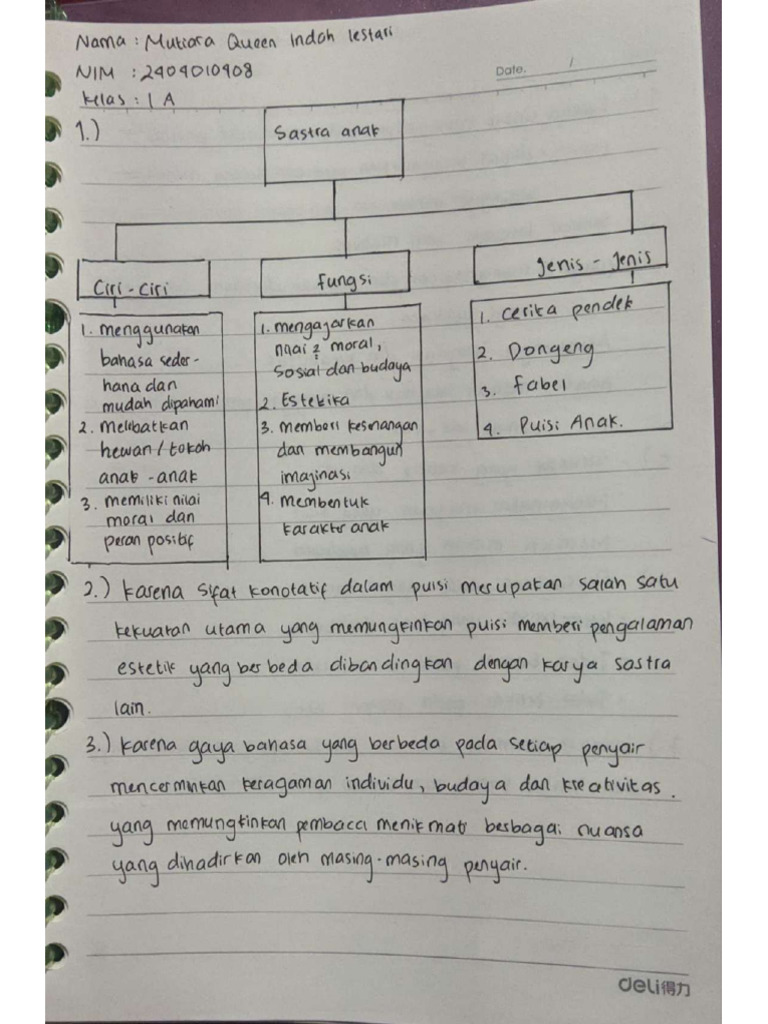 Nama : Mutiara Queen Indah lestari
NIM : 2404010408
Date. /
Kelas : 1 A
1.)
Sastra anak
Ciri - Ciri
1. menggunakan
bahasa seder-
hana dan
mudah dipahami
2. melibatkan
hewan / tokoh
anak - anak
3. memiliki nilai
moral dan
peran positif
fungsi
1. mengajarkan
nilai2 moral,
sosial dan budaya
2. Estetika
3. memberi kesenangan
dan membangun
imajinasi
4. membentuk
karakter anak
Jenis - Jenis
1. cerita pendek
2. Dongeng
3. fabel
4. Puisi Anak.
2.) karena sifat konotatif dalam puisi merupakan salah satu
kekuatan utama yang memungkinkan puisi memberi pengalaman
estetik yang berbeda dibandingkan dengan karya sastra
lain.
3.) karena gaya bahasa yang berbeda pada setiap penyair
mencerminkan keragaman individu, budaya dan kreativitas.
yang memungkinkan pembaca menikmati berbagai nuansa
yang dihadirkan oleh masing-masing penyair.
deli得力